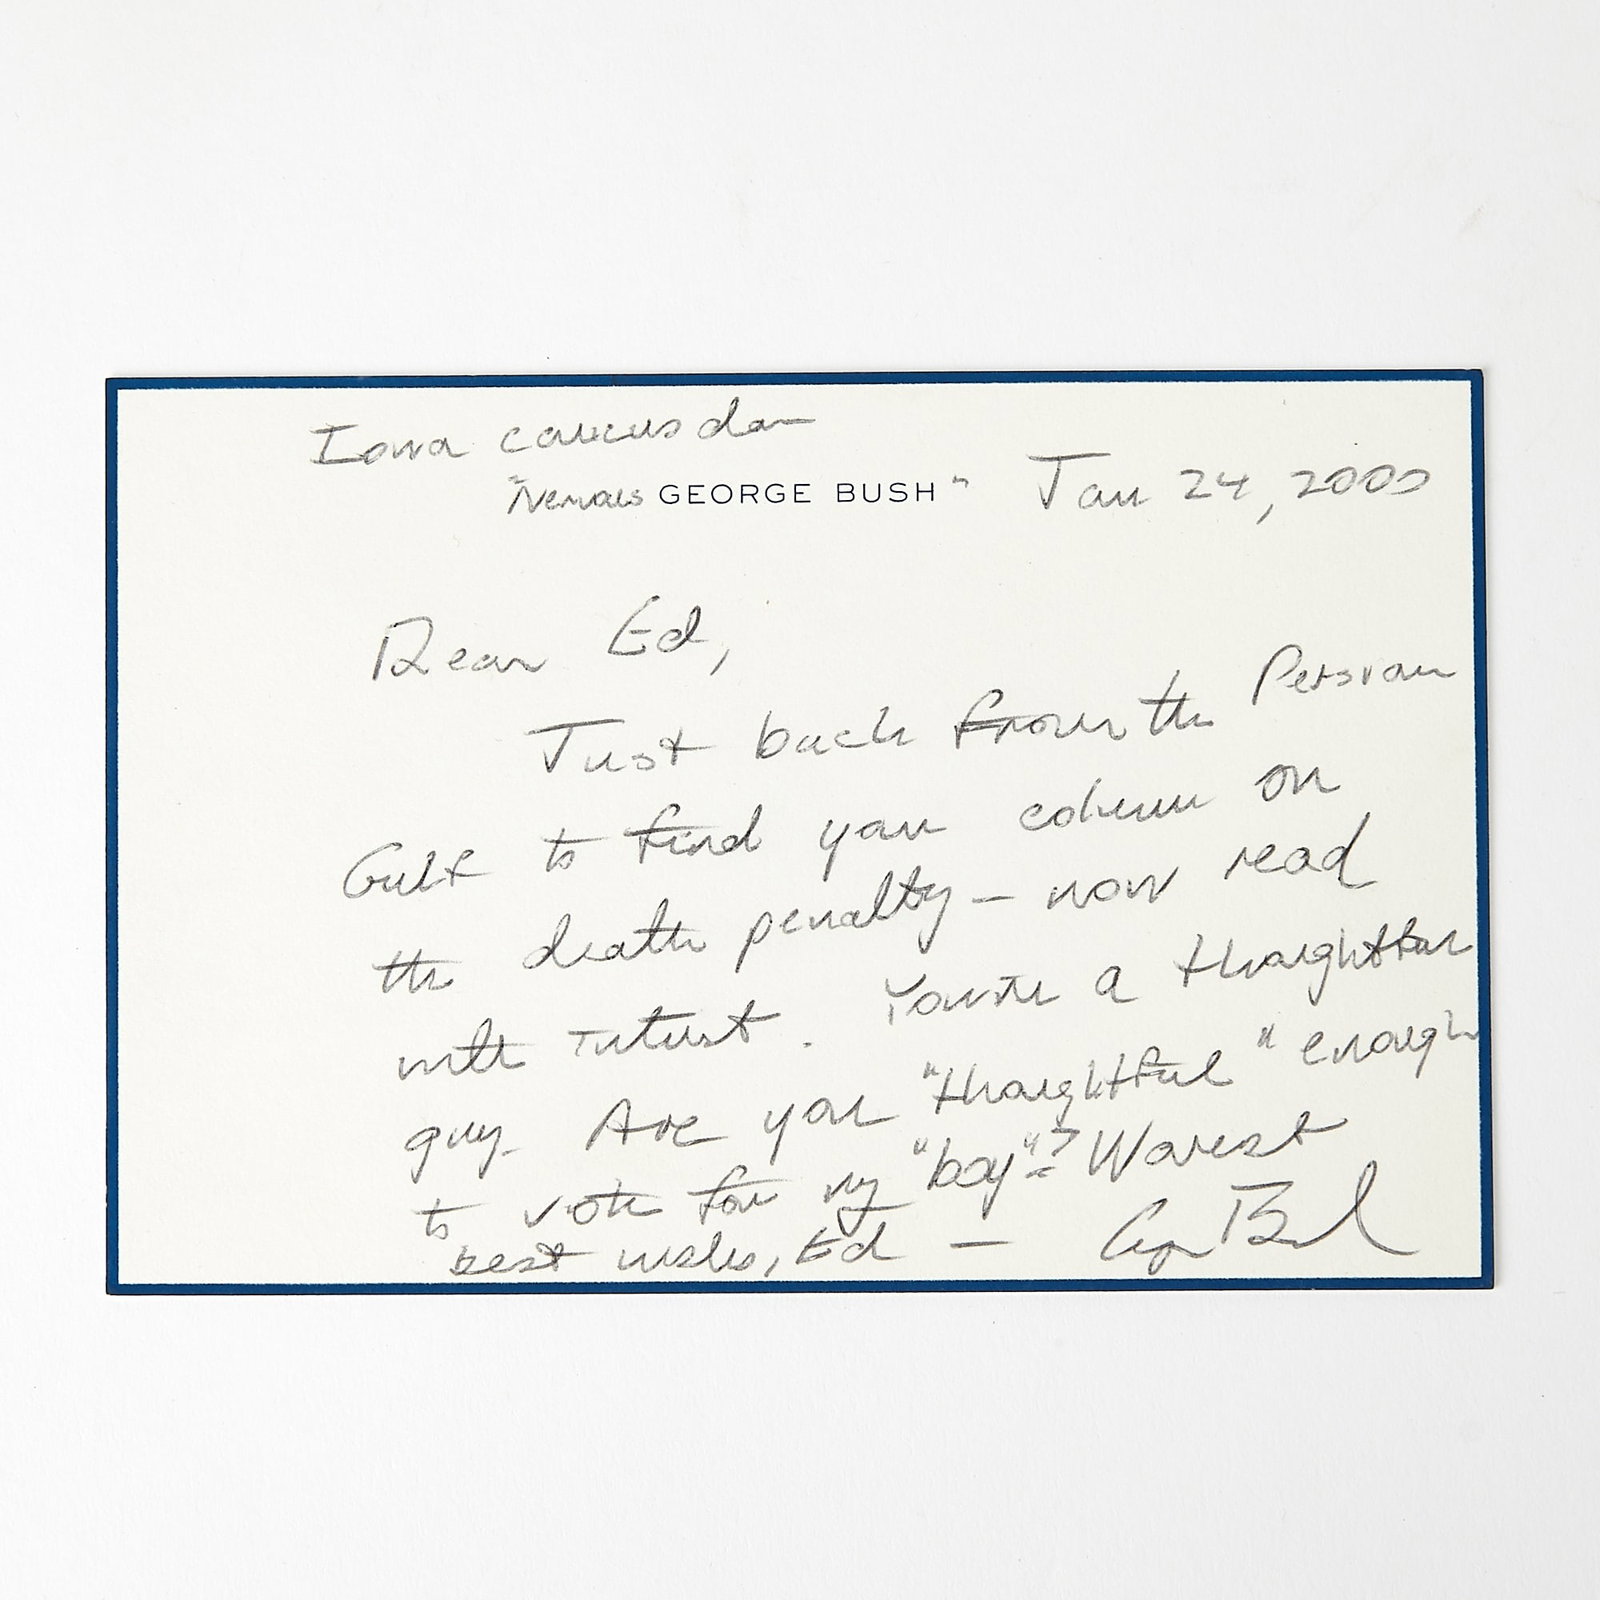 Iowa caucus day
"Nervous GEORGE BUSH" Jan 24, 2000
Dear Ed,
Just back from the Persian
Gulf to find your column on
the death penalty — now read
with interest. You're a thoughtful
guy. Are you "thoughtful" enough
to vote for my "boy"? Warmest
best wishes, Ed — George Bush